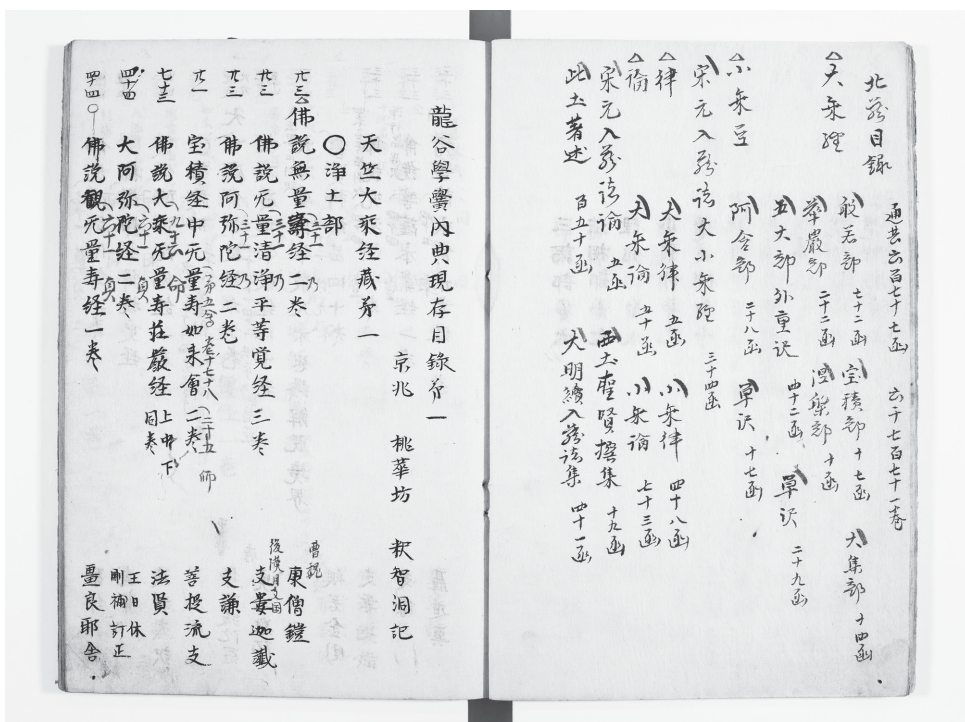 北蔵目録 通共六百七十七函 六千七百七十一巻
△大乗経 般若部 七十二函 宝積部 十七函 大集部 十四函
華厳部 二十二函 涅槃部 十函
五大部外重訳 四十二函 單訳 二十九函
△小乗 阿含部 二十八函 單訳 十七函
宋元入蔵諸大小乗経 三十四函
△律 大乗律 五函 小乗律 四十八函
△論 大乗論 五十函 小乗論 七十三函
宋元入蔵諸論 五函 西土聖賢撰集 十九函
此土著述 百五十函 大明續入蔵諸集 四十一函
龍谷學黌内典現存目録芥一 京兆 桃華坊 釈智洞記
天竺大乗経蔵芥一
○浄土部
佛説無量壽経二巻 曹魏 康僧鎧
佛説无量清浄平等覚経三巻 後漢月支国 支婁迦讖
佛説阿弥陀経二巻 支謙
宝積経中无量寿如来會二巻 菩提流支
佛説大乗无量寿荘厳経 上中下 同巻 法賢
大阿弥陀経二巻 王日休 訂正
佛説觀无量寿経一巻 畺良耶舎